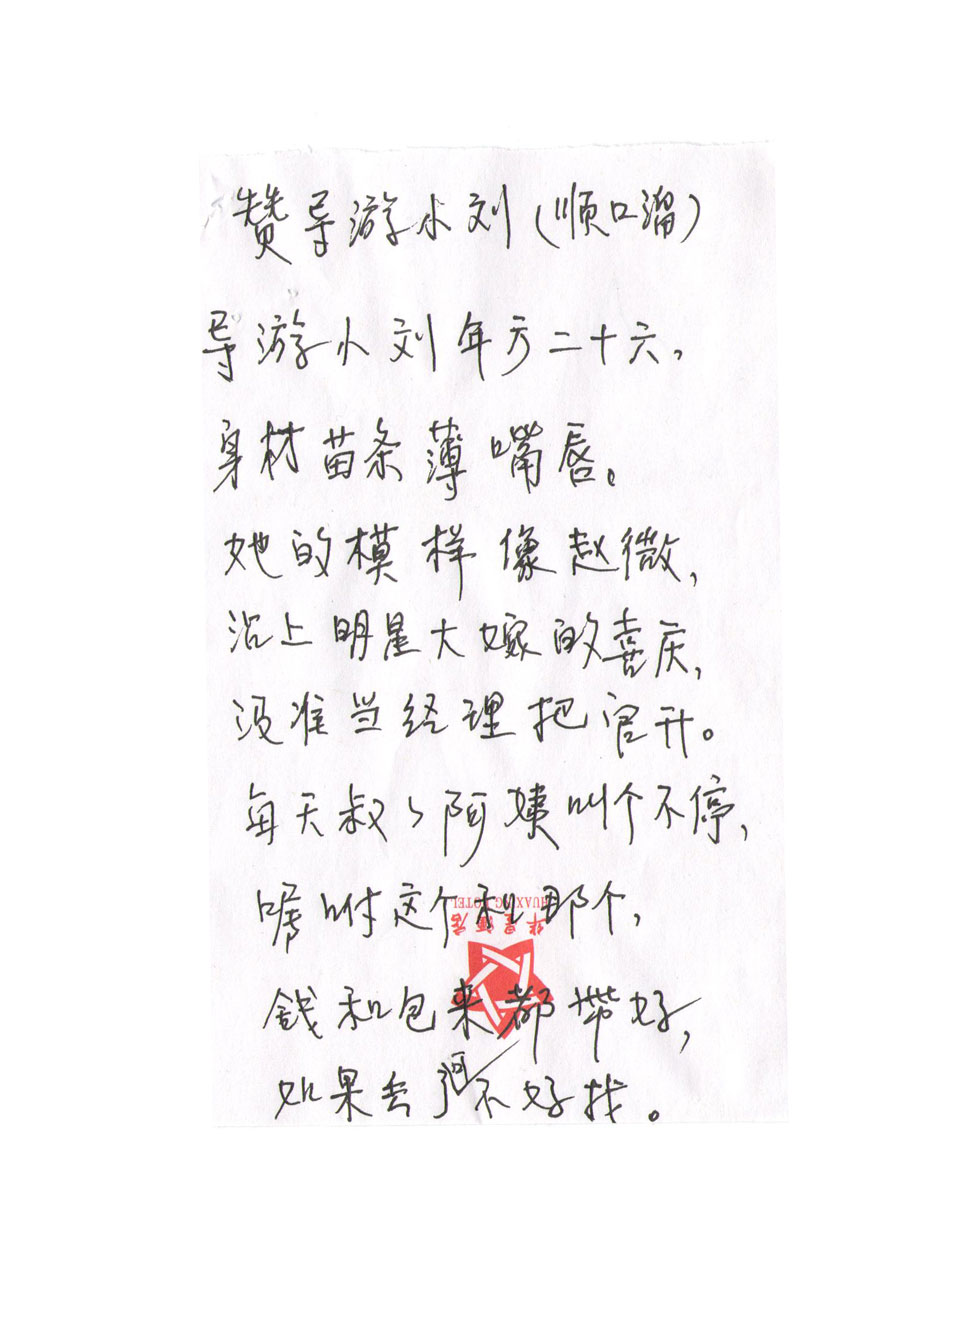 赞导游小刘(顺口溜)
导游小刘年方二十六,
身材苗条薄嘴唇。
她的模样像赵微,
沾上明星大嫁的喜庆,
没准当经理把官升。
每天叔々阿姨叫个不停,
嘱咐这个和那个,
HUAXING HOTEL
华星酒店
錢和包来都带好,
如果丢了可不好找。